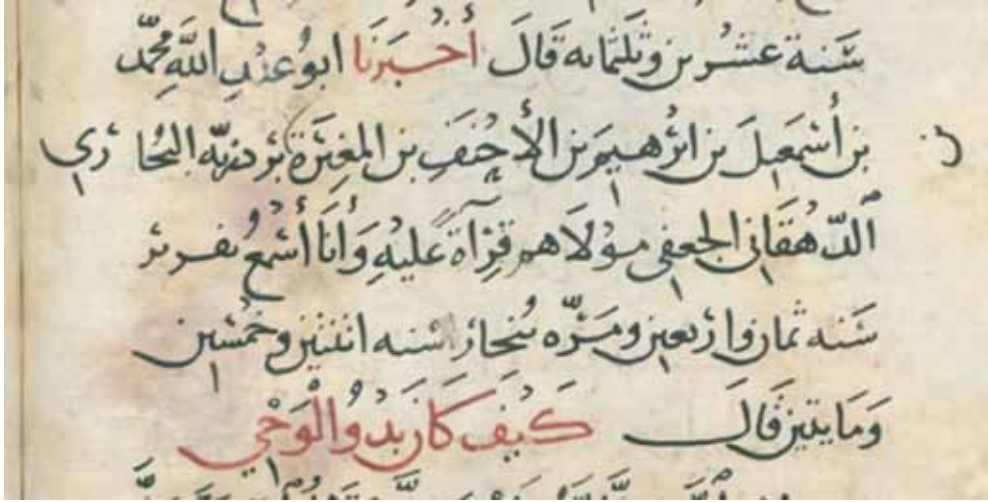 سنة عشرين وثلثمائة قال أخبرنا ابو عبد الله محمد
بن أسمعيل بن ابرهيم بن الأحنف بن المغيرة بن بردزبه البخاري
الدهقاني الجعفي مولاهم قرآة عليه وأنا أسمع بفربر
سنه ثمان واربعين ومره ببخارا سنه اثنتين وخمسين
ومايتين قال كيف كان بدو الوحي